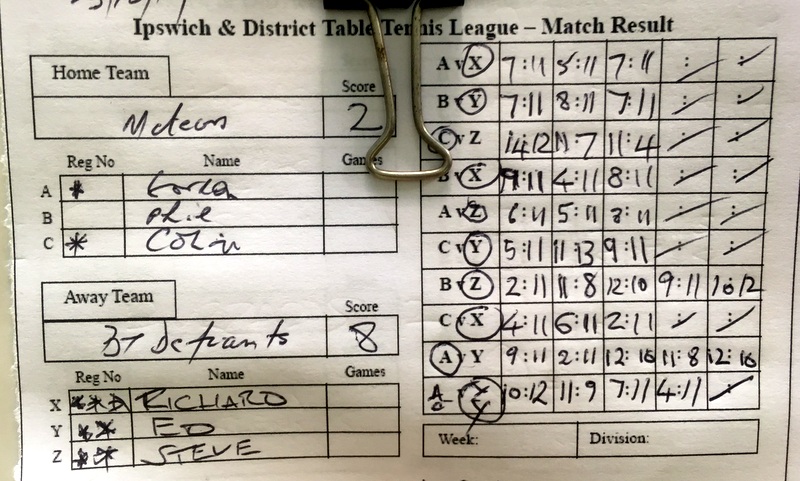 Ipswich & District Table Tennis League – Match Result
Home Team
Score
Meteors 2
Reg No Name Games
A *
B Phil
C * Colin
Away Team
Score
BT Defiants 8
Reg No Name Games
X *** RICHARD
Y ** ED
Z ** STEVE
A v X 7:11 5:11 7:11 : :
B v Y 7:11 8:11 7:11 : :
C v Z 14:12 11:7 11:4 : :
B v X 9:11 4:11 8:11 : :
A v Z 6:11 5:11 3:11 : :
C v Y 5:11 11:13 9:11 : :
B v Z 2:11 11:8 12:10 9:11 10:12
C v X 4:11 6:11 2:11 : :
A v Y 9:11 2:11 12:10 11:8 12:10
10:12 11:9 7:11 4:11
Week: Division: